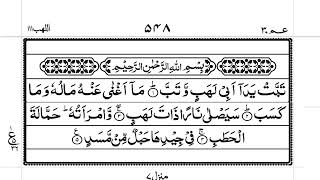 عم ٣٠ ٥٤٨ اللهب ١١١
بِسْمِ اللهِ الرَّحْمٰنِ الرَّحِيْمِ
تَبَّتْ يَدَاۤ اَبِیْ لَهَبٍ وَّتَبَّ ؕ ۱ مَاۤ اَغْنٰی عَنْهُ مَالُهٗ وَمَا
كَسَبَ ؕ ۲ سَیَصْلٰی نَارًا ذَاتَ لَهَبٍ ۚۖ ۳ وَّامْرَاَتُهٗ ؕ حَمَّالَةَ
الْحَطَبِ ۚ ۴ فِیْ جِیْدِهَا حَبْلٌ مِّنْ مَّسَدٍ ۠ ۵
منزل ٧